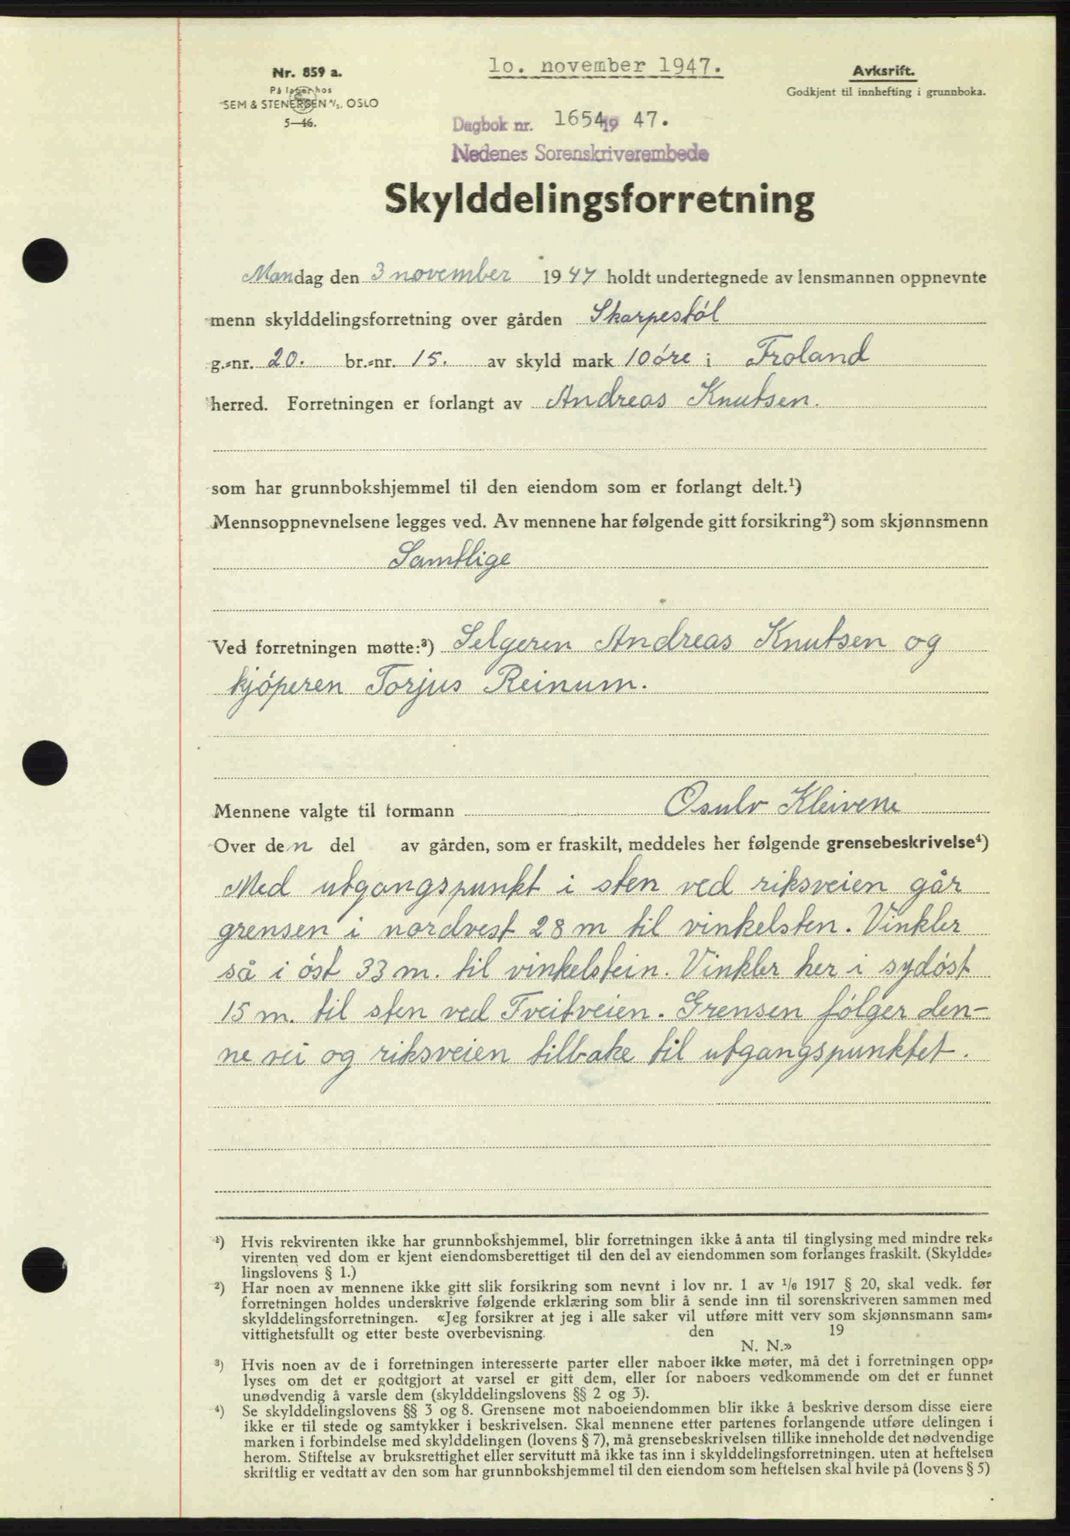 Nr. 859 a.
På lager hos
SEM & STENERSEN A/S. OSLO
5—46.
10. november 1947.
Avksrift.
Godkjent til innhefting i grunnboka.
Dagbok nr. 1654 19 47.
Nedenes Sorenskriverembede
Skylddelingsforretning
Mandag den 3 november 1947 holdt undertegnede av lensmannen oppnevnte
menn skylddelingsforretning over gården Skarpestöl
g.-nr. 20. br.-nr. 15. av skyld mark 10 öre i Froland
herred. Forretningen er forlangt av Andreas Knutsen.
som har grunnbokshjemmel til den eiendom som er forlangt delt.¹)
Mennsoppnevnelsene legges ved. Av mennene har følgende gitt forsikring²) som skjønnsmenn
Samtlige
Ved forretningen møtte:³) Selgeren Andreas Knutsen og
kjöperen Torjus Reinum.
Mennene valgte til formann Osulv Kleivene
Over den del av gården, som er fraskilt, meddeles her følgende grensebeskrivelse⁴)
Med utgangspunkt i sten ved riksveien går
grensen i nordvest 28 m til vinkelsten. Vinkler
så i öst 33 m. til vinkelstein. Vinkler her i sydöst
15 m. til sten ved Tveitveien. Grensen fölger den-
ne vei og riksveien tilbake til utgangspunktet.
¹) Hvis rekvirenten ikke har grunnbokshjemmel, blir forretningen ikke å anta til tinglysing med mindre rek-
virenten ved dom er kjent eiendomsberettiget til den del av eiendommen som forlanges fraskilt. (Skyldde-
lingslovens § 1.)
²) Har noen av mennene ikke gitt slik forsikring som nevnt i lov nr. 1 av 1/6 1917 § 20, skal vedk. før
forretningen holdes underskrive følgende erklæring som blir å sende inn til sorenskriveren sammen med
skylddelingsforretningen. «Jeg forsikrer at jeg i alle saker vil utføre mitt verv som skjønnsmann sam-
vittighetsfullt og etter beste overbevisning. den 19
N. N.»
³) Hvis noen av de i forretningen interesserte parter eller naboer ikke møter, må det i forretningen opp-
lyses om det er godtgjort at varsel er gitt dem, eller for naboers vedkommende om det er funnet
unødvendig å varsle dem (skylddelingslovens §§ 2 og 3).
⁴) Se skylddelingslovens §§ 3 og 8. Grensene mot naboeiendommen blir ikke å beskrive dersom disse eiere
ikke er til stede og samtykker i beskrivelsen. Skal mennene etter partenes forlangende utføre delingen i
marken i forbindelse med skylddelingen (lovens § 7), må grensebeskrivelsen tillike inneholde det nødvendige
herom. Stiftelse av bruksrettighet eller servitutt må ikke tas inn i skylddelingsforretningen. uten at heftelsen
skriftlig er vedtatt av den som har grunnbokshjemmel til den eiendom som heftelsen skal hvile på (lovens § 5)